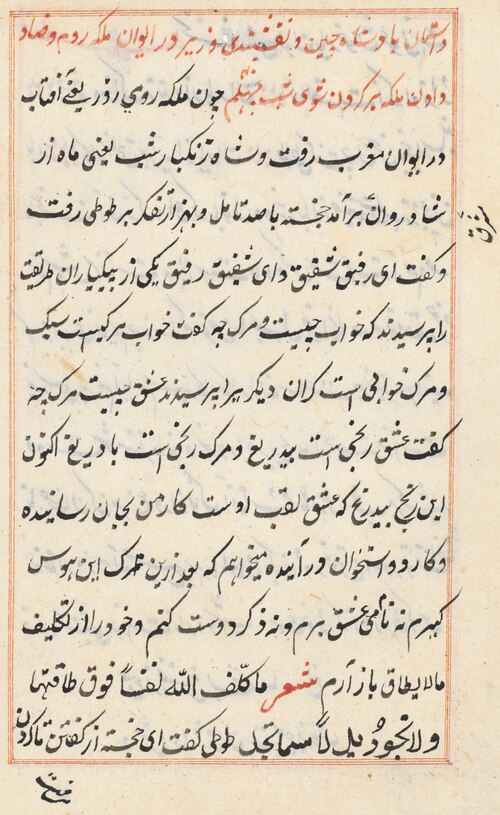 داستان پادشاه چین و نقشبندی وزیر در ایوان ملکه روم و صاد
دادن ملکه بر کردن شوی شب چهلم چون ملکه روی روز یعنی آفتاب
در ایوان مغرب رفت و شاه زنکبار شب یعنی ماه از
شادروان برآمد خجسته با صد تامل و بهزار تفکر بر طوطی رفت
و کفت ای رفیق شفیق و ای شفیق رفیق یکی از پیکیاران طریقت
را پرسیدند که خواب چیست و مرک چه کفت خواب مرکیست سبک
و مرک خوابی است کران دیکر پیرا پرسیدند عشق چیست مرک چه
کفت عشق رنجی است بیدریغ و مرک رنجی است با دریغ اکنون
این رنج بیدریغ که عشق لقب اوست کار من بجان رسانیده
و کارد و استخوان در آینده میخواهم که بعد ازین ترک این هوس
کیرم نه نامی عشق برم و نه ذکر دوست کنم و خود را از تکلیف
مالایطاق باز آرم شعر ما کلّف الله نفساً فوق طاقتها
و لا تجود یل لا سما تجل طوطی کفت ای خجسته از کفتن تا کردن
فرق